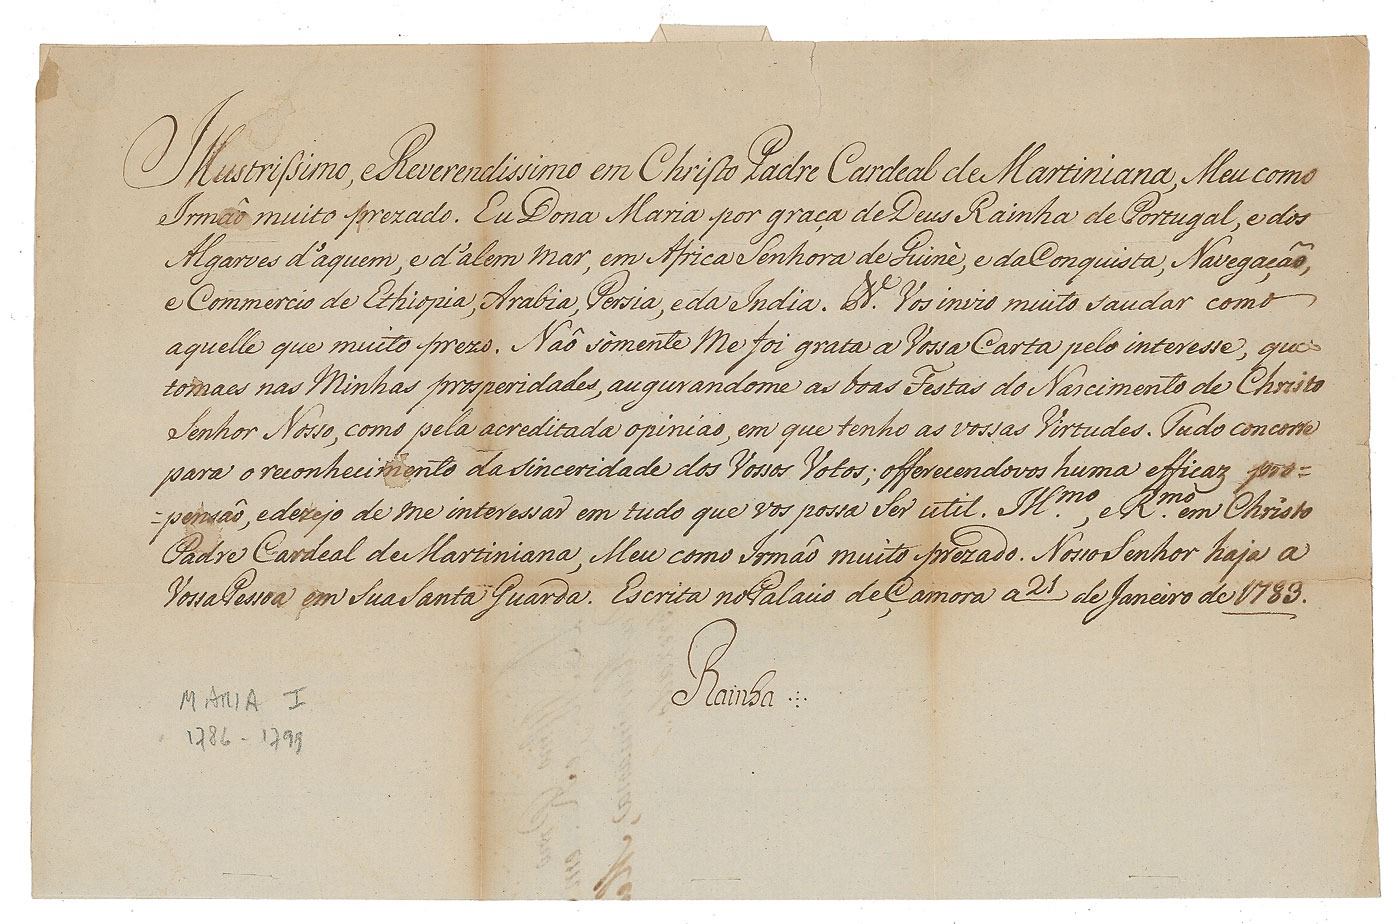 Illustrissimo, e Reverendissimo em Christo Padre Cardeal de Martiniana, Meu como
Irmaõ muito prezado. Eu Dona Maria por graça de Deus Rainha de Portugal, e dos
Algarves d'aquem, e d'alem mar, em Africa Senhora de Guinè, e da Conquista, Navegaçaõ,
e Commercio de Ethiopia, Arabia, Persia, e da India. &.ª Vos invio muito saudar como
aquelle que muito prezo. Naõ sòmente Me foi grata a Vossa Carta pelo interesse, que
tomaes nas Minhas prosperidades, augurandome as boas Festas do Nascimento de Christo
Senhor Nosso, como pela acreditada opiniaõ, em que tenho as vossas Virtudes. Tudo concorre
para o reconhecimento da sinceridade dos Vossos Votos; offerecendovos huma efficaz pro=
=pensaõ, e dezejo de me interessar em tudo que vos possa ser util. Ill.mo, e R.mo em Christo
Padre Cardeal de Martiniana, Meu como Irmaõ muito prezado. Nosso Senhor haja a
Vossa Pessoa em Sua Santa Guarda. Escrita no Palacio de Çamora a 21 de Janeiro de 1783.
Rainha
MARIA I
1786 - 1799